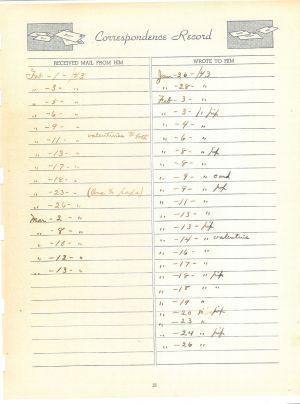 Correspondence Record
RECEIVED MAIL FROM HIM
Feb - 1 - 43
" - 3 - "
" - 5 - "
" - 6 - "
" - 9 - "
" - 11 - " valentines to both
" - 13 - "
" - 17 - "
" - 18 - "
" - 23 - " (One to papa)
" - 26 - "
Mar - 2 - "
" - 8 - "
" - 10 - "
" - 12 - "
" - 13 - "
WROTE TO HIM
Jan - 26 - 43
" - 28 - "
Feb - 3 - "
" - 3 - "
" - 4 - "
" - 6 - "
" - 8 - "
" - 8 - "
" - 9 - " card
" - 9 - "
" - 11 - "
" - 13 - "
" - 13 -
" - 14 - " valentine
" - 16 - "
" - 17 - "
" - 18 - "
" - 18 "
" - 19 "
" - 20 "
" - 23 "
" - 24 "
" - 26 "